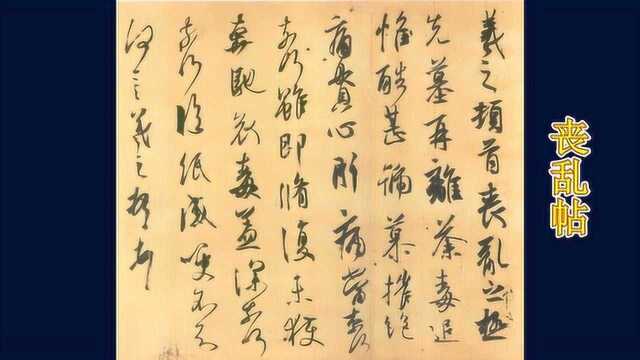 羲之頓首喪亂之極
先墓再離荼毒追
惟酷甚號慕摧絕
痛貫心肝痛當奈何
奈何雖即脩復未獲
奔馳哀毒益深奈何
奈何臨紙感哽不知
何言羲之頓首
丧乱帖